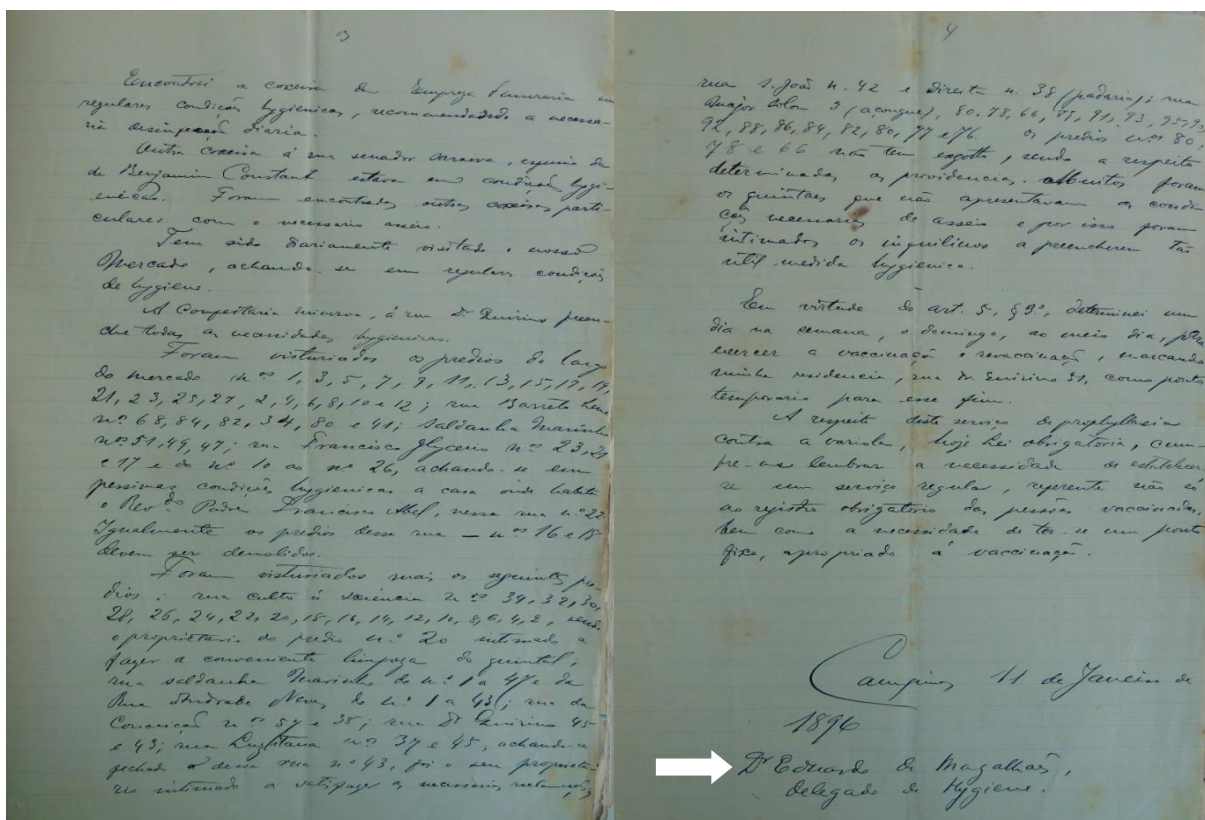 3
Encontrei a coxeira da Empreza funeraria em
regulares condições hygienicas, recommendando a necessa-
ria desinfecção diaria.
Outra coxeira á rua senador Saraiva, esquina da
de Benjamin Constant estava em condições hygi-
enicas. Foram encontradas outras coxeiras parti-
culares com o necessario asseio.
Tem sido diariamente visitado o nosso
Mercado, achando-se em regulares condições
de hygiene.
A Confeitaria Minerva, á rua Dr. Quirino preen-
che todas as necessidades hygienicas.
Foram visturiados os predios do largo
do mercado nos 1, 3, 5, 7, 9, 11, 13, 15, 17, 19,
21, 23, 25, 27, 2, 4, 6, 8, 10 e 12; rua Barreto Leme
nos 68, 84, 82, 34, 80 e 41; Saldanha Marinho
nos 51, 49, 47; rua Francisco Glycerio nos 23, 21
e 17 e do no 10 ao no 26, achando-se em
pessimas condições hygienicas a casa onde habita
o Revdo Padre Francisco Abel, nessa rua no 22
Igualmente os predios dessa rua — nos 16 e 18
devem ser demolidos.
Foram visturiados mais os seguintes pre-
dios: rua culto á sciencia nos 34, 32, 30,
28, 26, 24, 22, 20, 18, 16, 14, 12, 10, 8, 6, 4, 2, sendo
o proprietario do predio no 20 intimado a
fazer a conveniente limpeza do quintal;
rua saldanha Marinho do no 1 a 47 e da
Rua Andrade Neves do no 1 a 43; rua da
Conceição nos 57 e 38; rua Dr Quirino 45
e 43; rua Luzitana nos 37 e 45, achando-se
fechado o dessa rua no 43, foi o seu proprieta-
rio intimado a satisfazer as necessarias reclamações
4
rua S. João n. 42 e Direita n. 38 (padaria); rua
Major Solon 9 (açougue), 80, 78, 66, 91, 93, 95,
92, 88, 86, 84, 82, 80, 77 e 76. Os predios nos 80,
78 e 66 não tem exgotto, sendo a respeito
determinadas as providencias. Muitos foram
os quintaes que não apresentavam as condi-
ções necessarias de asseio e por isso foram
intimados os inquilinos a preencherem tão
util medida hygienica.
Em virtude do art. 5, § 9º, determinei um
dia na semana, o domingo, ao meio dia, para
exercer a vaccinação e revaccinação, marcando
minha residencia, rua Dr. Quirino 51, como ponto
temporario para esse fim.
A respeito deste serviço de prophylaxia
contra a variola, hoje lei obrigatoria, cum-
pre-me lembrar a necessidade de estabelecer-
se um serviço regular, referente não só
ao registro obrigatorio das pessoas vaccinadas,
bem como a necessidade de ter-se um ponto
fixo, apropriado á vaccinação.
Campinas 11 de Janeiro de
1896
Dr Eduardo de Magalhães,
Delegado de Hygiene.